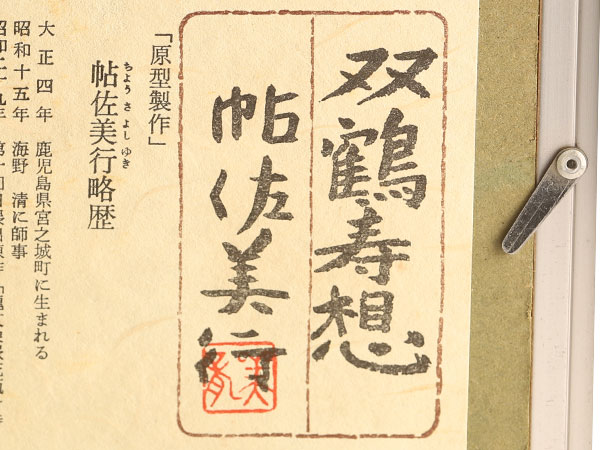 双鶴寿想
帖佐美行
「原型製作」
ちょう さ よし ゆき
帖佐美行略歴
大正四年 鹿児島県宮之城町に生まれる
昭和十五年 海野 清に師事